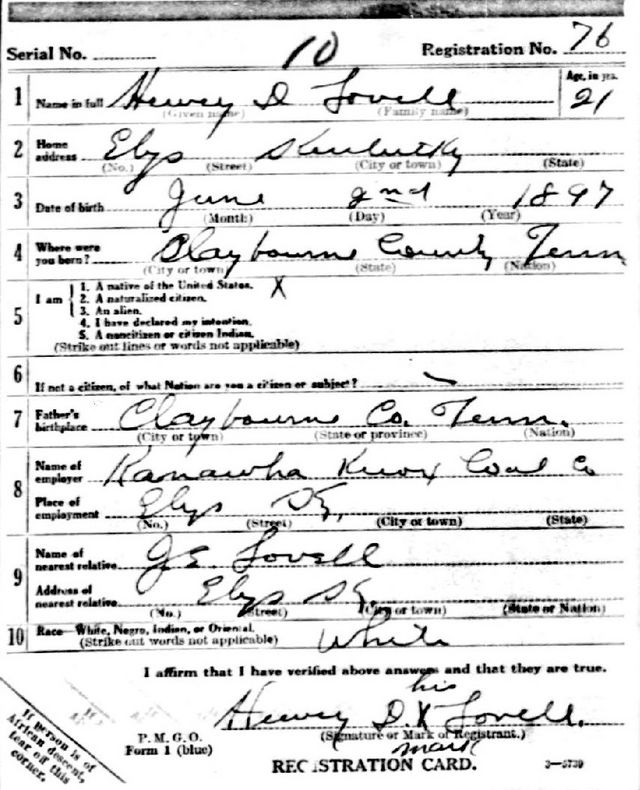 Serial No. 10 Registration No. 76
1 Name in full Hervey D Lovell Age, in yrs. 21
(Given name) (Family name)
2 Home address Elys Kentucky
(No.) (Street) (City or town) (State)
3 Date of birth June 2nd 1897
(Month) (Day) (Year)
4 Where were you born? Claybourne County Tenn
(City or town) (State) (Nation)
5 I am
1. A native of the United States. X
2. A naturalized citizen.
3. An alien.
4. I have declared my intention.
5. A noncitizen or citizen Indian.
(Strike out lines or words not applicable)
6 If not a citizen, of what Nation are you a citizen or subject?
7 Father's birthplace Claybourne Co. Tenn.
(City or town) (State or province) (Nation)
8 Name of employer Kanawha Knox Coal Co
Place of employment Elys Ky.
(No.) (Street) (City or town) (State)
9 Name of nearest relative J.E. Lovell
Address of nearest relative Elys Ky.
(No.) (Street) (City or town) (State or Nation)
10 Race—White, Negro, Indian, or Oriental. White
(Strike out words not applicable)
I affirm that I have verified above answers and that they are true.
his
Hervey D. X Lovell.
(Signature or Mark of Registrant.)
mark
P. M. G. O.
Form 1 (blue)
REGISTRATION CARD. 3—5739
If person is of
African descent,
tear off this
corner.